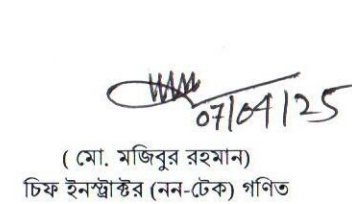 07/04/25
( মো. মজিবুর রহমান)
চিফ ইনস্ট্রাক্টর (নন-টেক) গণিত